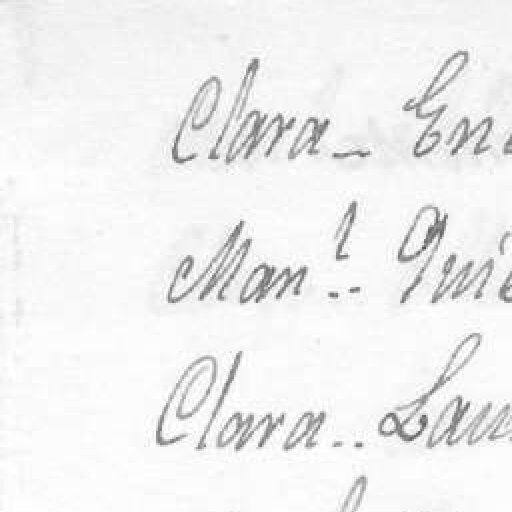 Clara - En
Man.l - Quie
Clara .. Lau